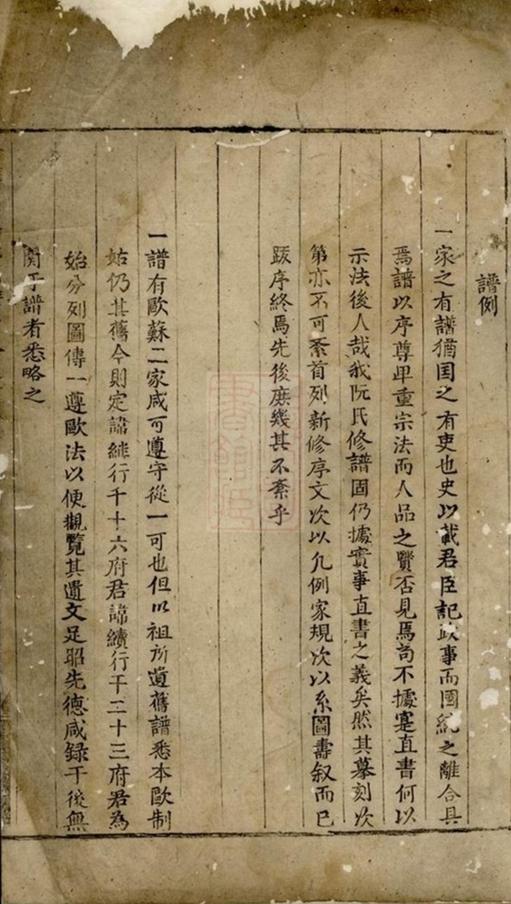 譜例
一家之有譜猶国之有吏也史以載君臣記政事而國統之離合具
焉譜以序尊卑重宗法而人品之賢否見焉苟不據寔直書何以
示法後人哉我阮氏修譜固仍據實事直書之義矣然其摹刻次
第亦不可紊首列新修序文次以凢例家規次以系圖壽叙而已
跋序終焉先後庶幾其不紊乎
一譜有歐蘇二家咸可遵守從一可也但以祖所遺舊譜悉本歐制
姑仍其舊今則定諱緋行千十六府君諱續行千二十三府君為
始分列圖傳一遵歐法以便觀覧其遺文足昭先德咸録于後無
関于譜者悉略之